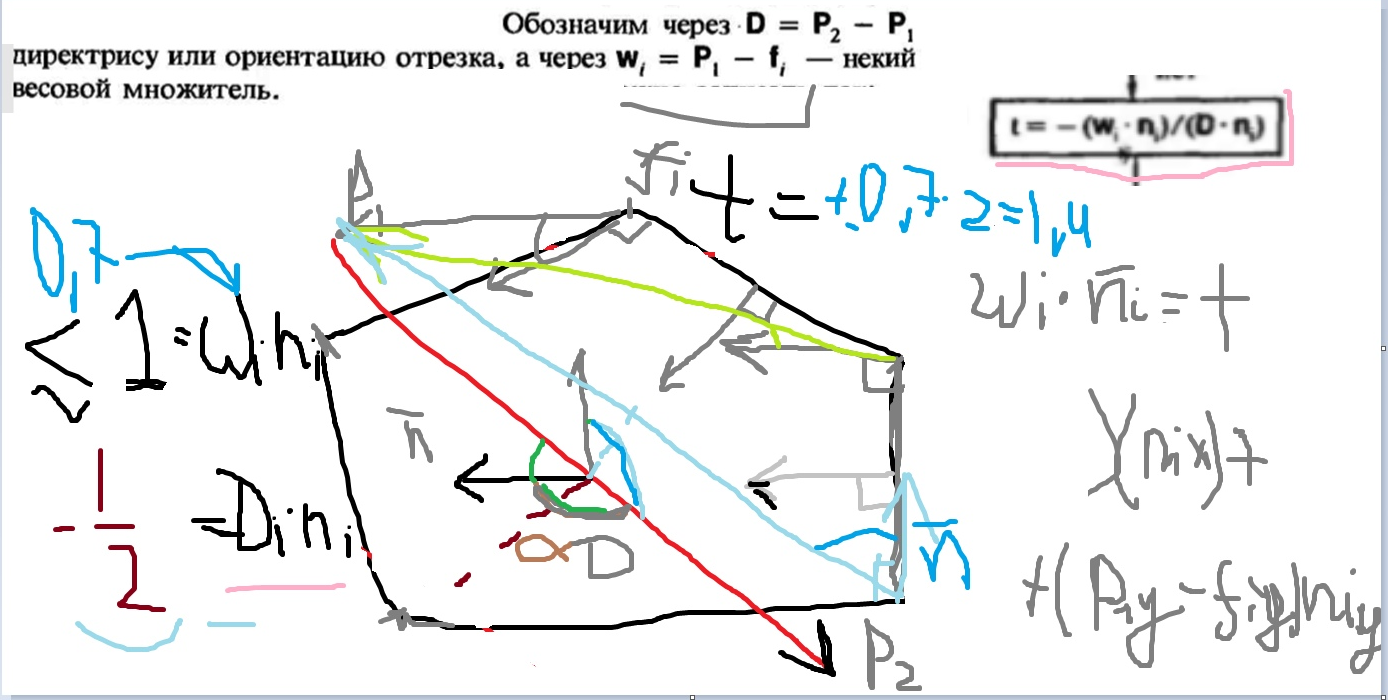 Обозначим через D = P₂ − P₁
директрису или ориентацию отрезка, а через wᵢ = P₁ − fᵢ — некий
весовой множитель.
t = −(wᵢ · nᵢ)/(D · nᵢ)
P₁
fᵢ
t = +0,7·2=1,4
0,7
wᵢ·n̅ᵢ = +
< 1 = Wᵢ·nᵢ
n̅
-1/2 = Dᵢnᵢ
α D
n̅
+(P₁y − fᵢy)nᵢy
P₂